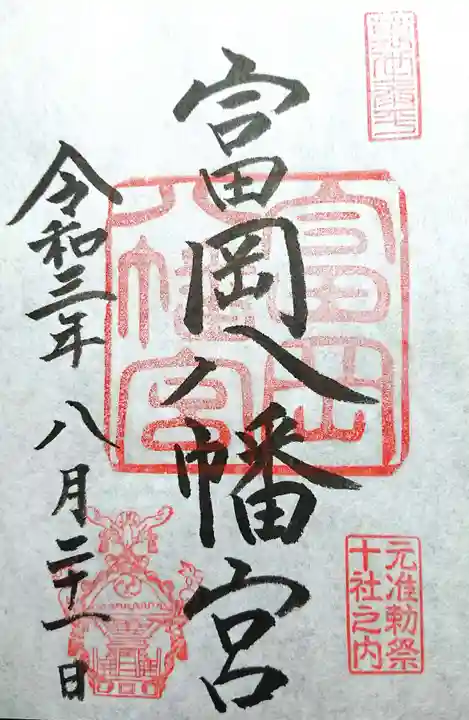 富岡八幡宮
令和三年八月二十一日
富岡
八幡宮
元准勅祭
十社之内